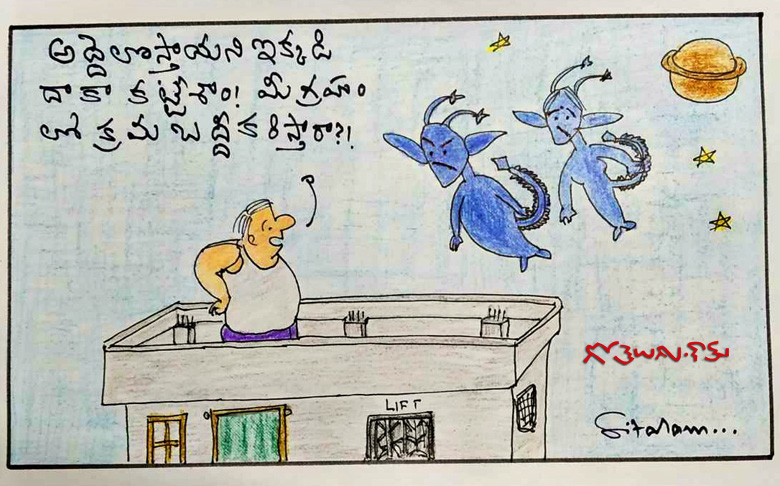 అద్దెలొస్తాయని ఇక్కడి
దాకా కట్టేశాం! మీగ్రహం
లో క్రమబద్ధీకరిస్తారా?!
LIFT
గోతెలుగు.కామ్
Sitaram...